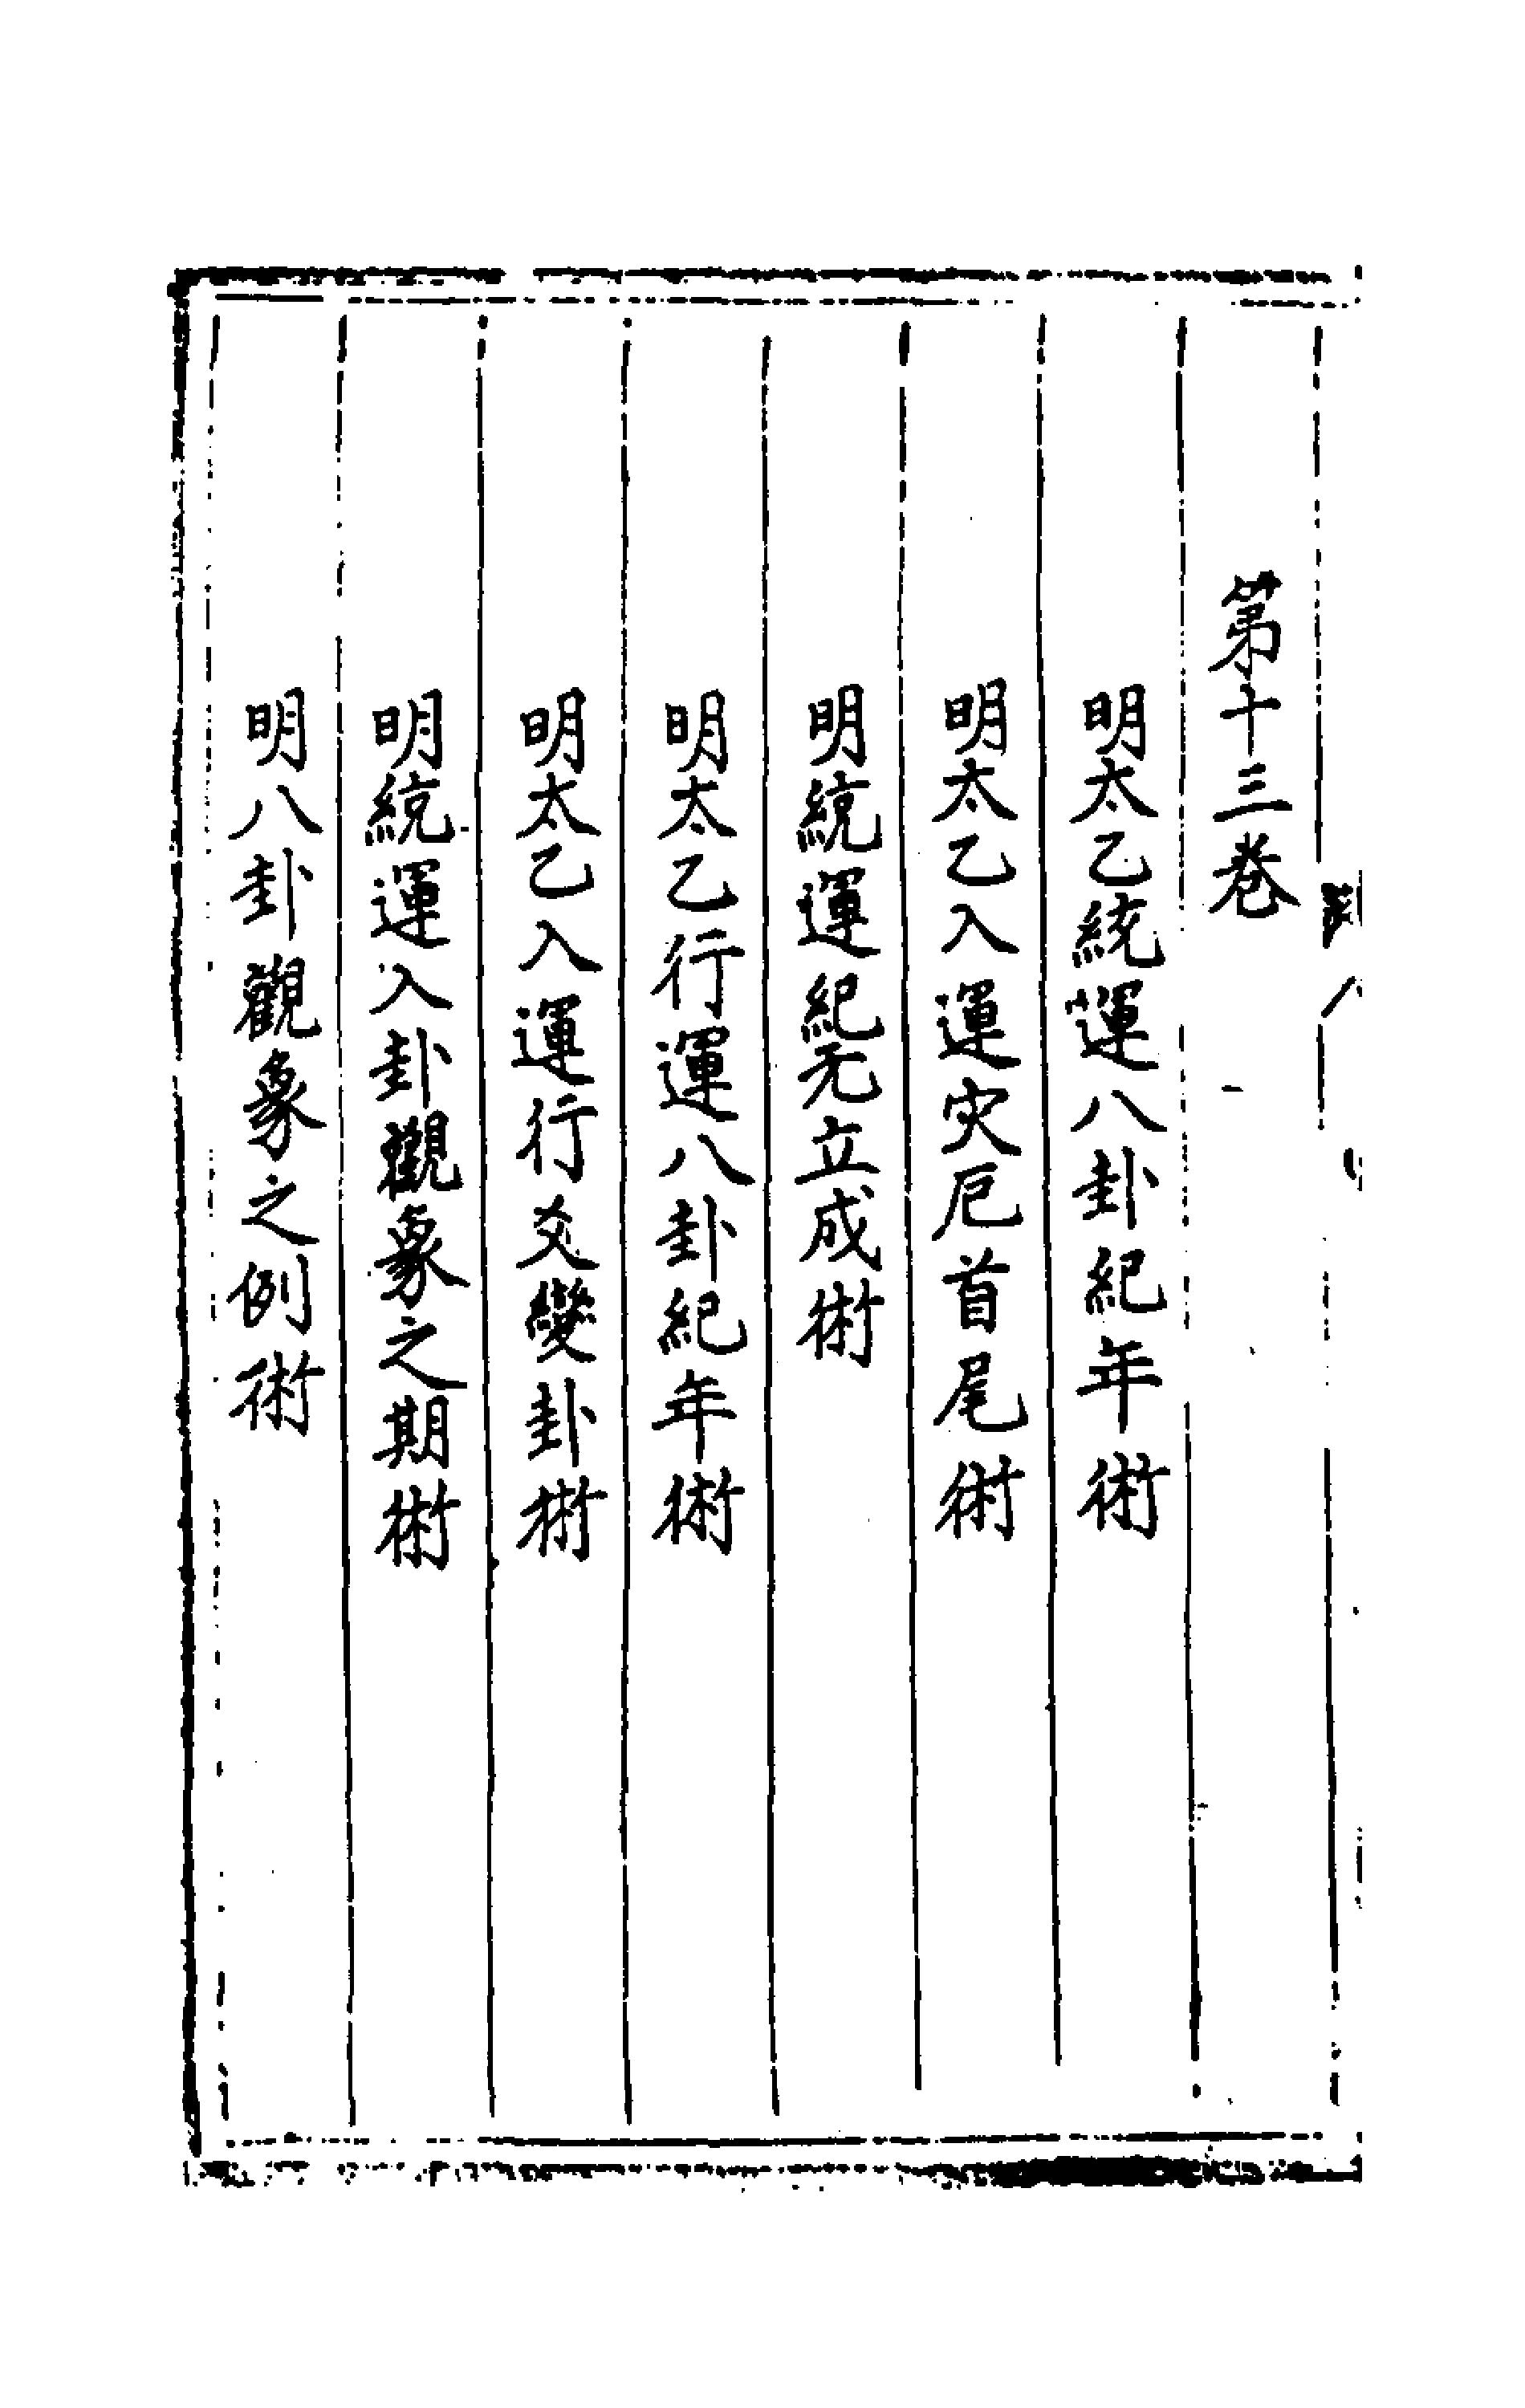 第十三卷
明太乙統運八卦紀年術
明太乙入運灾厄首尾術
明統運紀元立成術
明太乙行運八卦紀年術
明太乙入運行爻變卦術
明統運入卦觀象之期術
明八卦觀象之例術